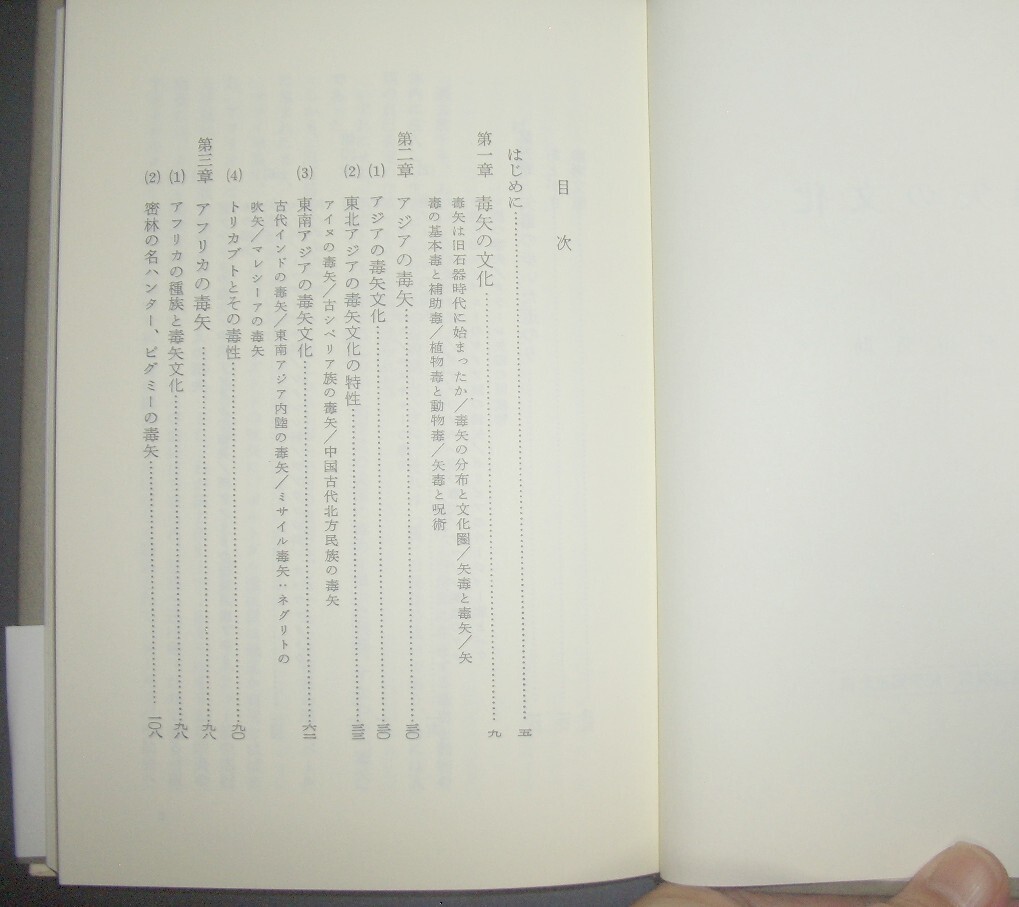 目次
はじめに……………五
第一章 毒矢の文化……………九
毒矢は旧石器時代に始まったか／毒矢の分布と文化圏／矢毒と毒矢／矢
毒の基本毒と補助毒／植物毒と動物毒／矢毒と呪術
第二章 アジアの毒矢……………三〇
(1) アジアの毒矢文化……………三〇
(2) 東北アジアの毒矢文化の特性……………三三
アイヌの毒矢／古シベリア族の毒矢／中国古代北方民族の毒矢
(3) 東南アジアの毒矢文化……………六二
古代インドの毒矢／東南アジア内陸の毒矢／ミサイル毒矢：ネグリトの
吹矢／マレシーアの毒矢
(4) トリカブトとその毒性……………九〇
第三章 アフリカの毒矢……………九八
(1) アフリカの種族と毒矢文化……………九八
(2) 密林の名ハンター、ピグミーの毒矢……………一〇八